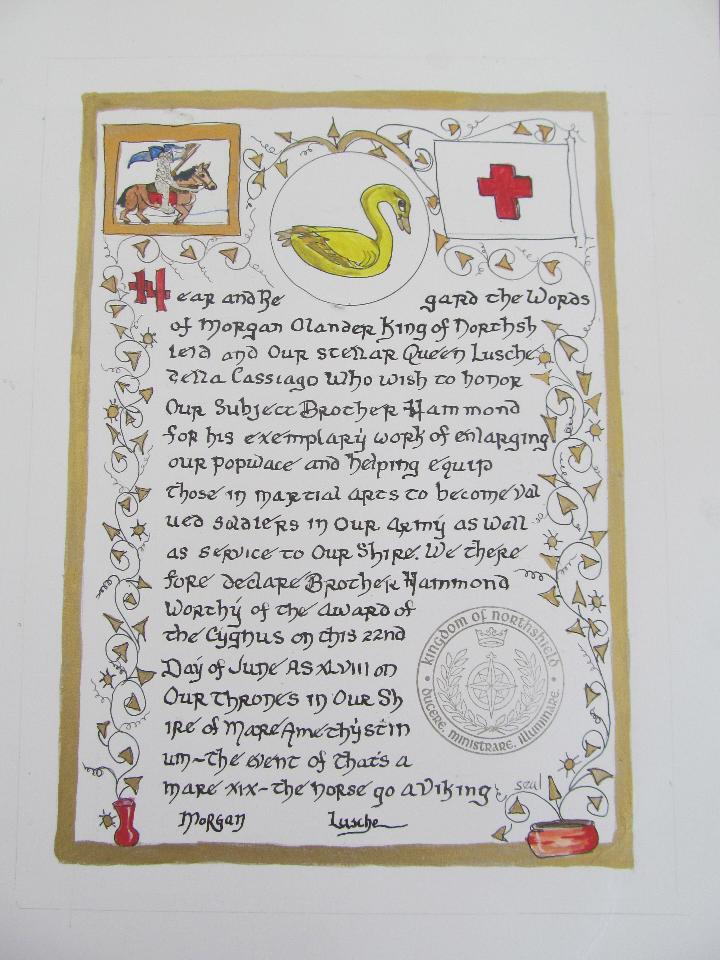 Hear and Re gard the Words
of Morgan Olander King of Northsh
ield and Our stellar Queen Lusche
della Cassiago Who wish to honor
Our Subject Brother Hammond
for his exemplary work of enlarging
our populace and helping equip
those in martial arts to become val
ued soldiers in Our Army as well
as service to Our Shire. We there
fore declare Brother Hammond
Worthy of the award of
the Cygnus on this 22nd
Day of June AS XLVIII on
Our Thrones in Our Sh
ire of Mare Amethystin
um~the event of thats a
mare XIX~the Norse go a Viking
KINGDOM OF NORTHSHIELD
DUCERE, MINISTRARE, ILLUMINARE
seal
Morgan Lusche